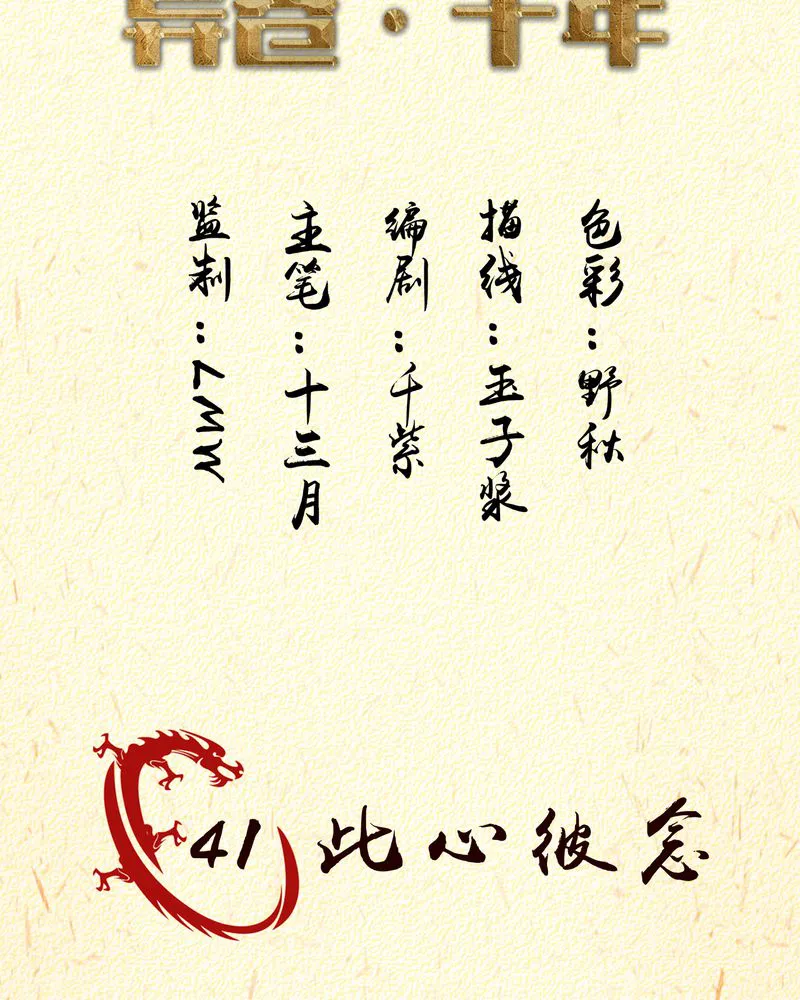 监制：ZMW
主笔：十三月
编剧：千紫
描线：玉子浆
色彩：野秋
41 此心彼念